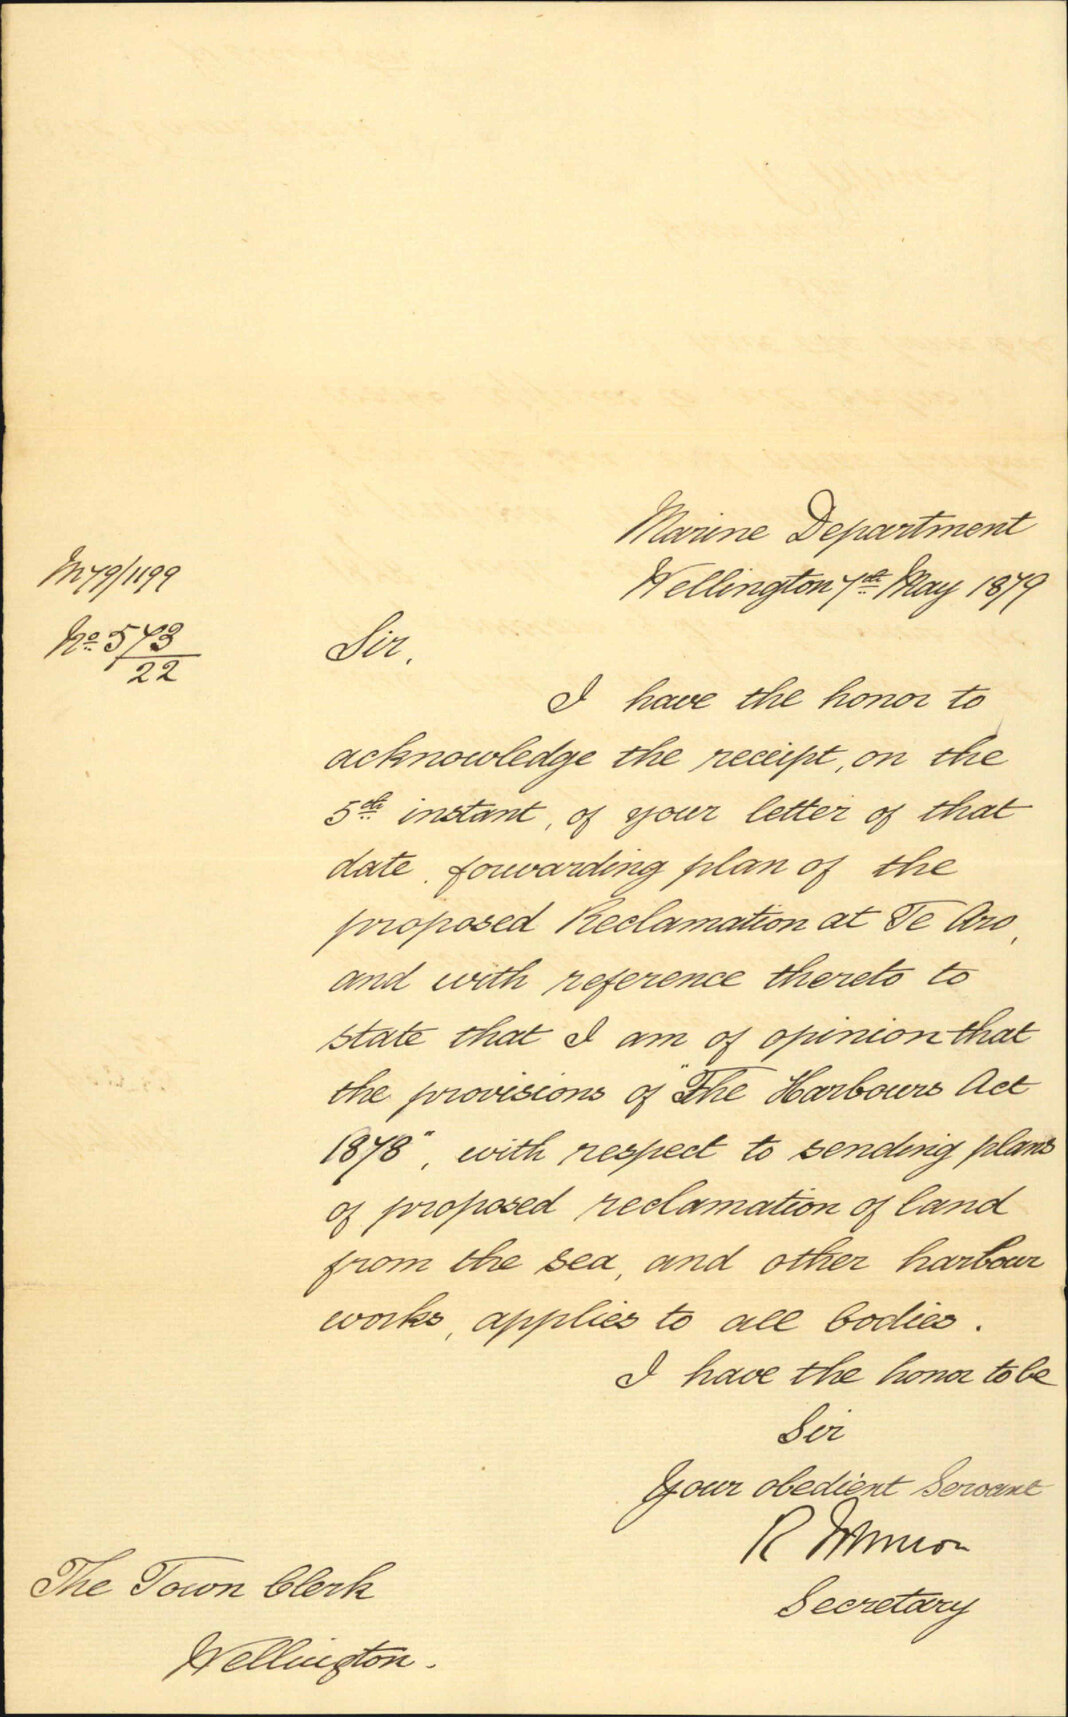 Marine Department
Wellington 7th May 1879
M79/1199
No 573/22
Sir,
I have the honor to
acknowledge the receipt, on the
5th instant, of your letter of that
date. forwarding plan of the
proposed Reclamation at Te Aro,
and with reference thereto to
state that I am of opinion that
the provisions of "The Harbours Act
1878", with respect to sending plans
of proposed reclamation of land
from the sea, and other harbour
works, applies to all bodies.
I have the honor to be
Sir
Your obedient Servant
R
Secretary
The Town Clerk
Wellington.